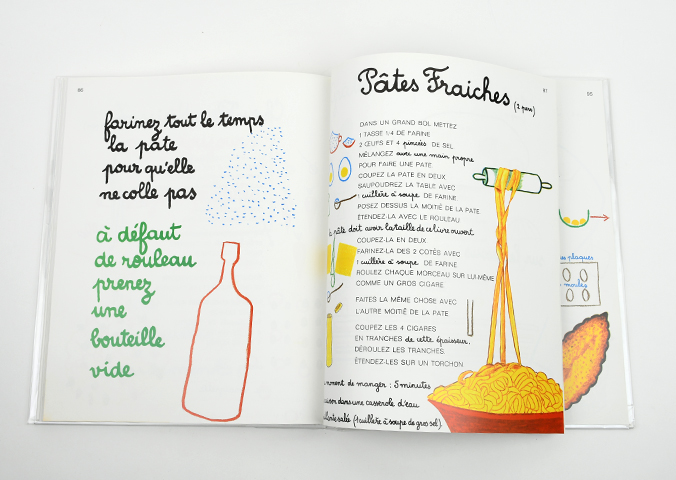 86
farinez tout le temps
la pate
pour qu'elle
ne colle pas
à défaut
de rouleau
prenez
une
bouteille
vide
Pâtes Fraiches (2 pers)
87
DANS UN GRAND BOL METTEZ
1 TASSE 1/4 DE FARINE
2 ŒUFS ET 4 pincées DE SEL
MÉLANGEZ avec une main propre
POUR FAIRE UNE PATE
COUPEZ LA PATE EN DEUX
SAUPOUDREZ LA TABLE AVEC
1 cuillère à soupe DE FARINE
POSEZ DESSUS LA MOITIÉ DE LA PATE
ÉTENDEZ-LA AVEC LE ROULEAU
pâte doit avoir la taille de ce livre ouvert
COUPEZ-LA EN DEUX
FARINEZ-LA DES 2 COTÉS AVEC
1 cuillère à soupe DE FARINE
ROULEZ CHAQUE MORCEAU SUR LUI-MÊME
COMME UN GROS CIGARE
FAITES LA MÊME CHOSE AVEC
L'AUTRE MOITIÉ DE LA PATE
COUPEZ LES 4 CIGARES
EN TRANCHES de cette épaisseur.
DÉROULEZ LES TRANCHES
ÉTENDEZ-LES SUR UN TORCHON
moment de manger : 5 minutes
dans une casserole d'eau
salée (1 cuillère à soupe de gros sel)
95
plaques
moules